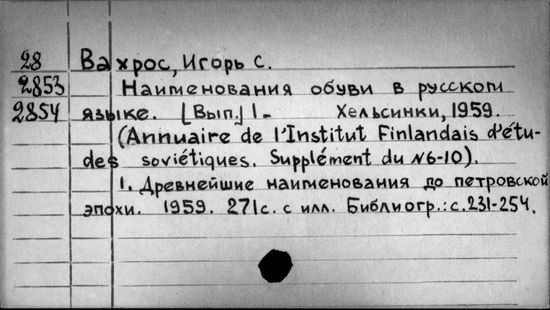 28 Вахрос, Игорь С.
2853 Наименования обуви в русском
2854 языке. [Вып.] 1- Хельсинки, 1959.
(Annuaire de l'Institut Finlandais d'étu-
des soviétiques. Supplément du N6-10).
1. Древнейшие наименования до петровской
эпохи. 1959. 271с. с илл. Библиогр.: с.231-254.